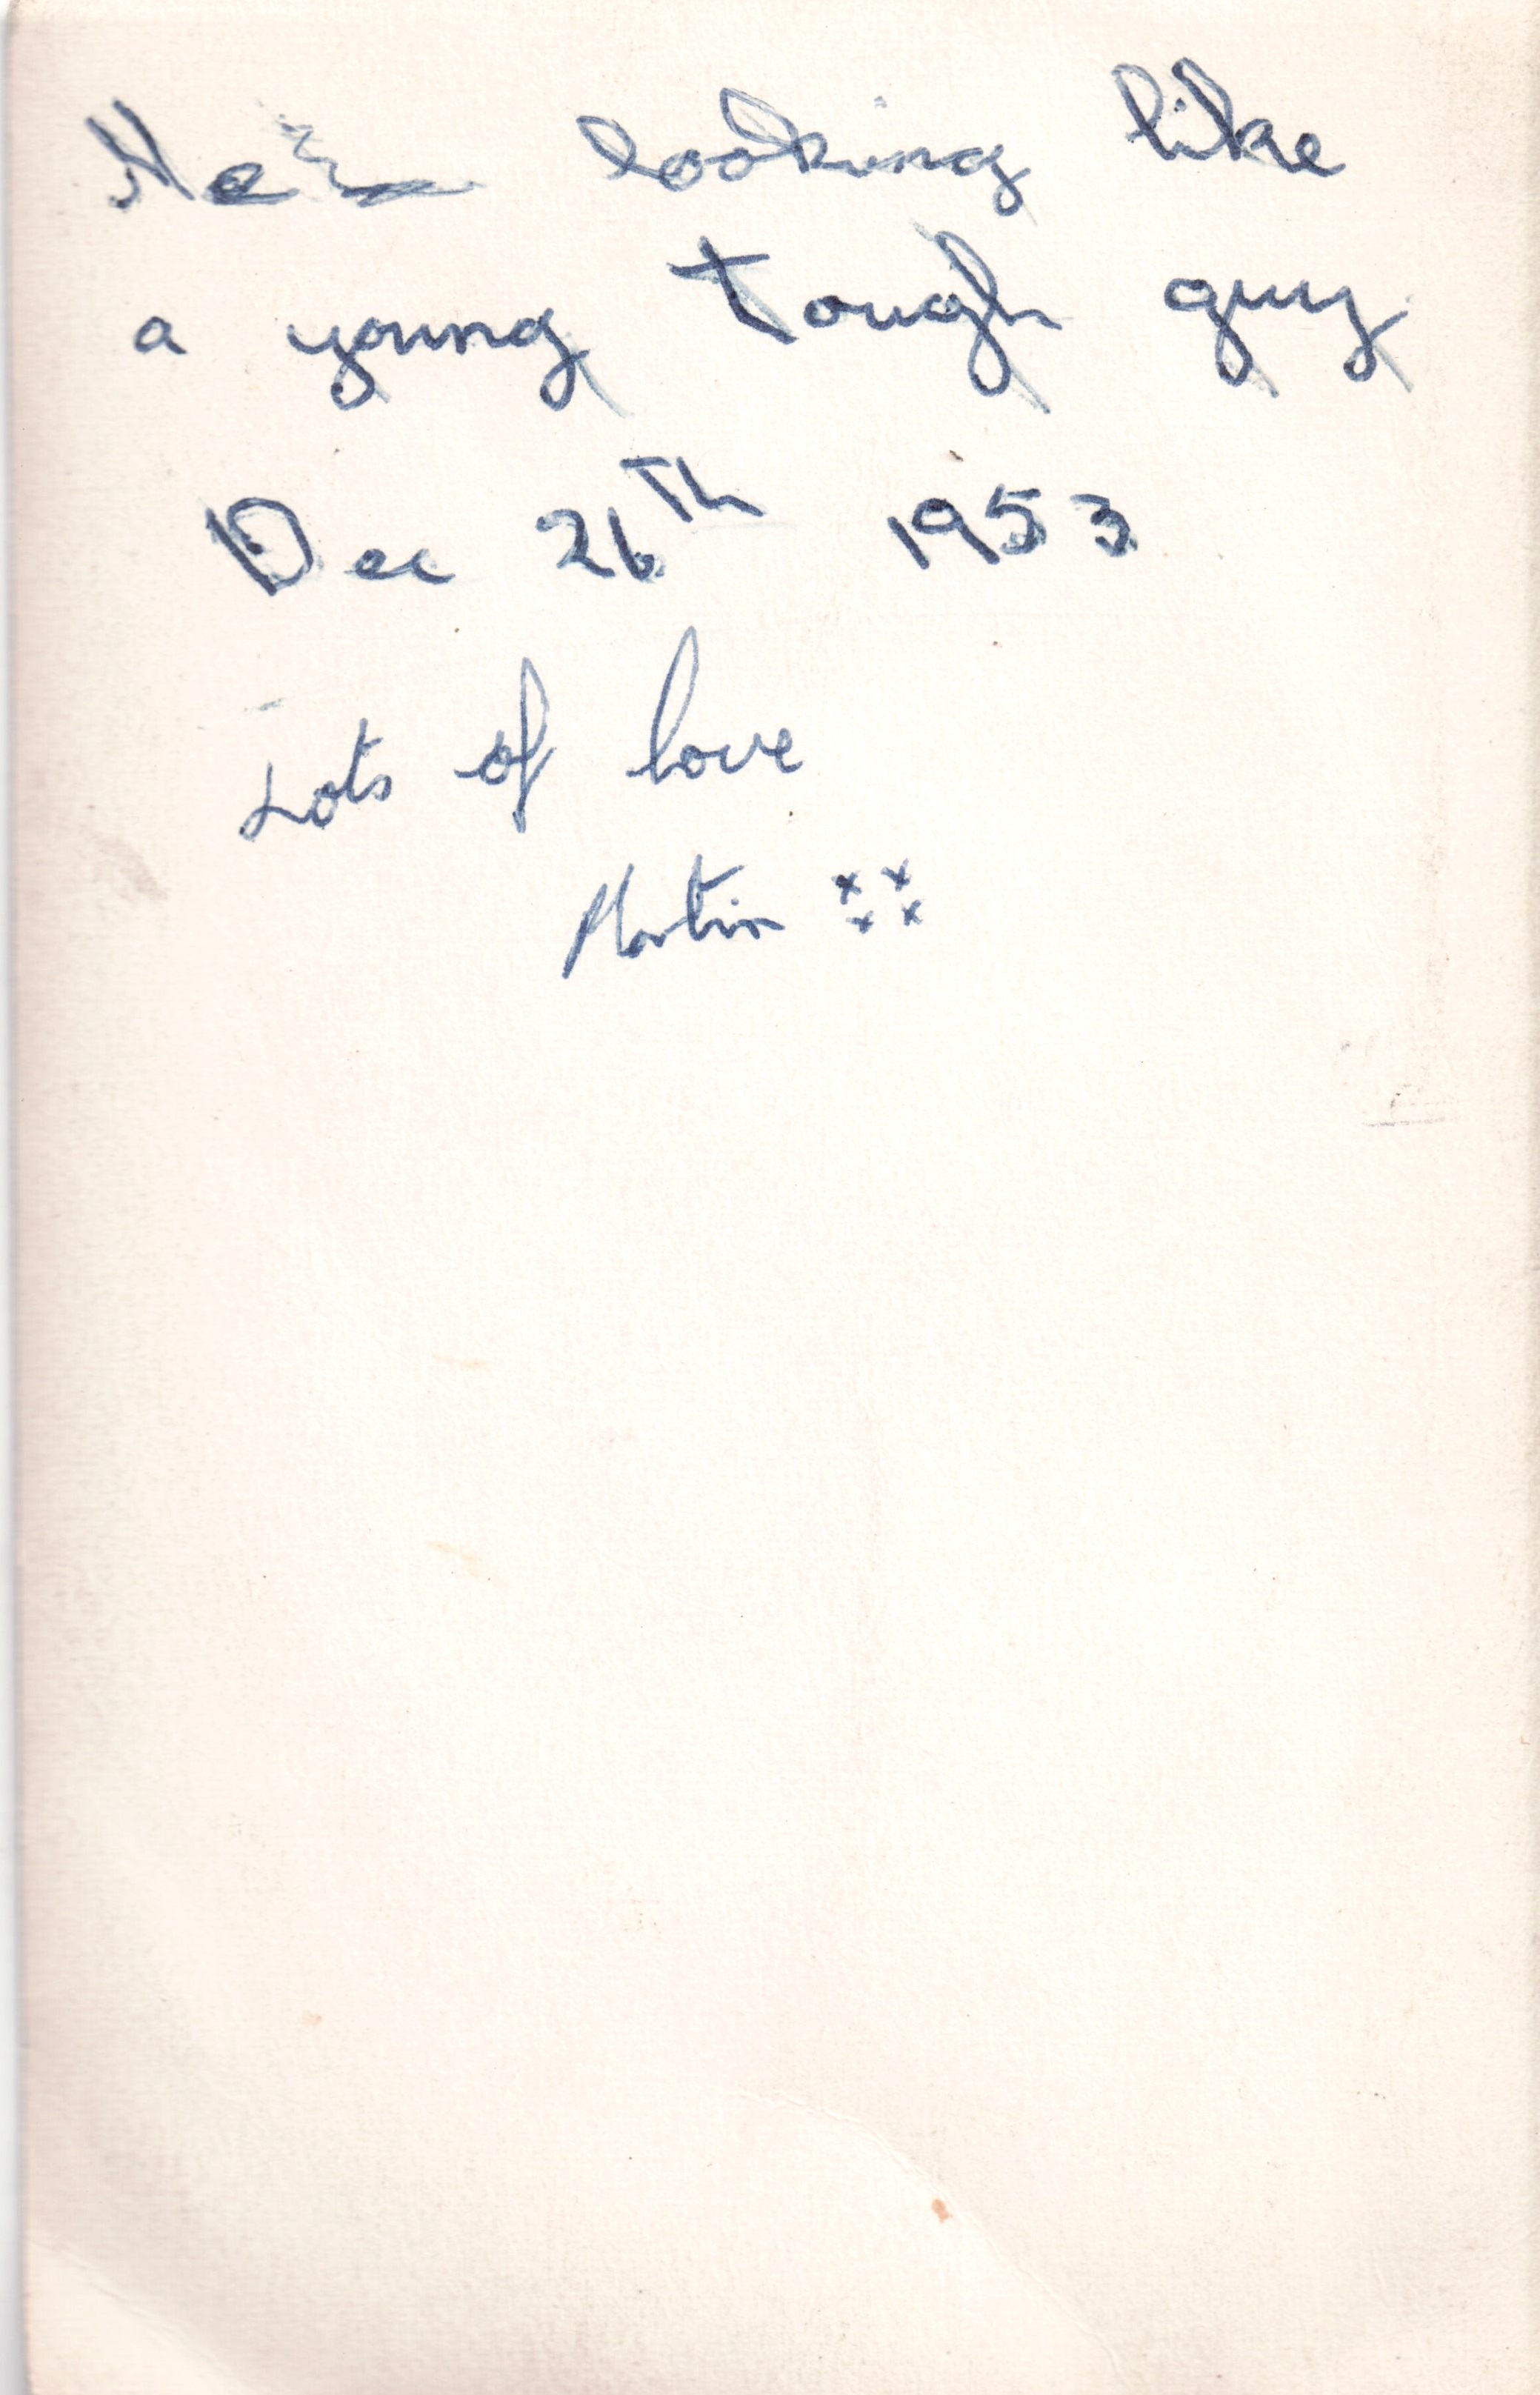 Me looking like
a young tough guy
Dec 26th 1953
Lots of love
Martin xxxx